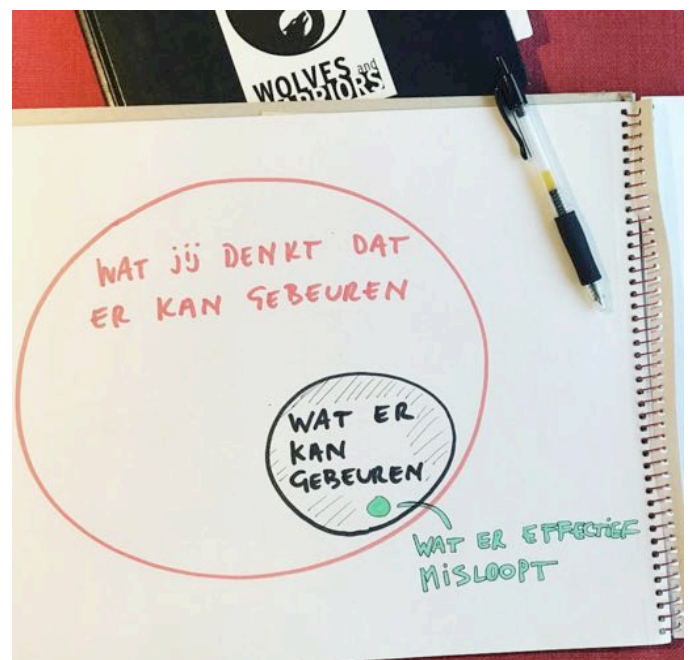 WOLVES and
WARRIORS
WAT jij DENKT DAT
ER KAN GEBEUREN
WAT ER
KAN
GEBEUREN
WAT ER EFFECTIEF
MiSLOOPT